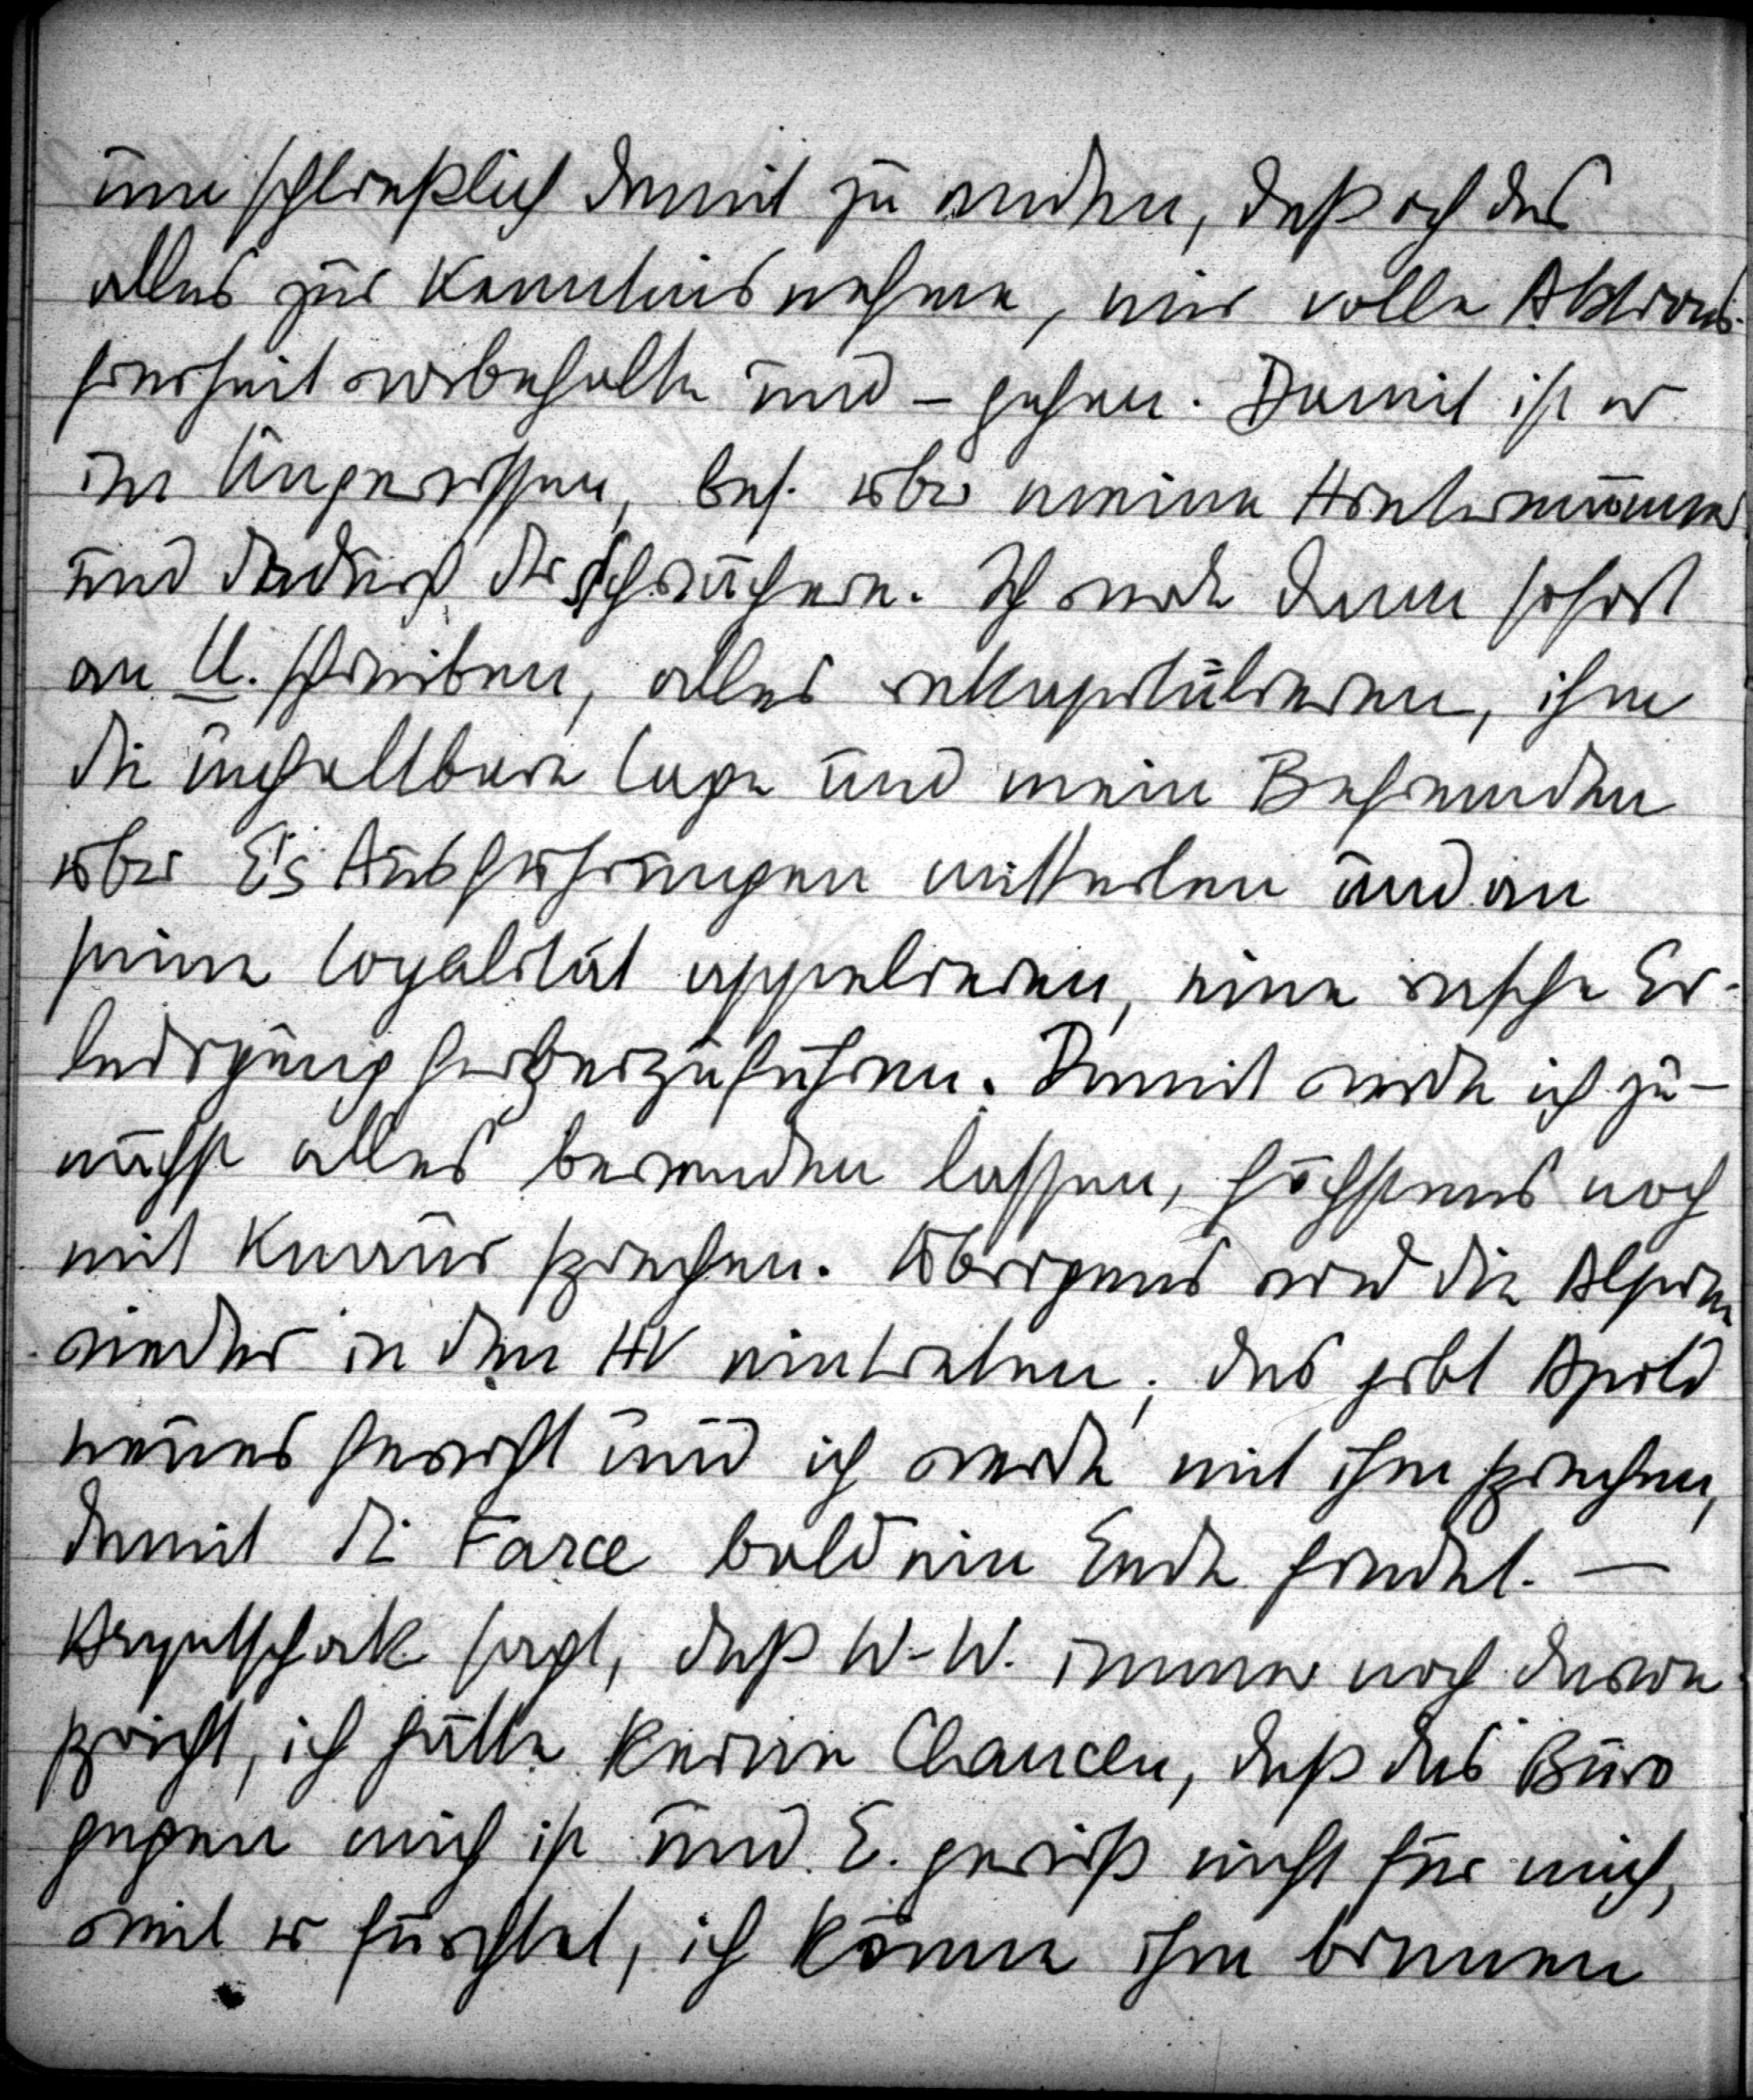 um schließlich damit zu enden, daß ich das
alles zur Kenntnis nehme, mir volle Aktions-
freiheit vorbehalte und – gehen. Damit ist er
im Ungewissen, bes. über meine Hintermänner
und dadurch der Schwächere. Ich werde dann sofort
an U. schreiben, alles rekapitulieren, ihm
die unhaltbare Lage und mein Befremden
über E's Ausführungen mitteilen und an
seine Loyalität appelieren, eine rasche Er-
ledigung herbeizuführen. Damit werde ich zu-
nächst alles bewenden lassen, höchstens noch
mit Knaur sprechen. Übrigens wird die Alpine
wieder in den HV eintreten; das gibt Apold
neues Gewicht und ich werde mit ihm sprechen,
damit die Farce bald ein Ende findet. —
sagt, daß W-W. immer noch davon
spricht, ich hätte keine Chancen, daß das Büro
gegen mich ist und E. gewiß nicht für mich,
weil er fürchtet, ich könne ihm binnen